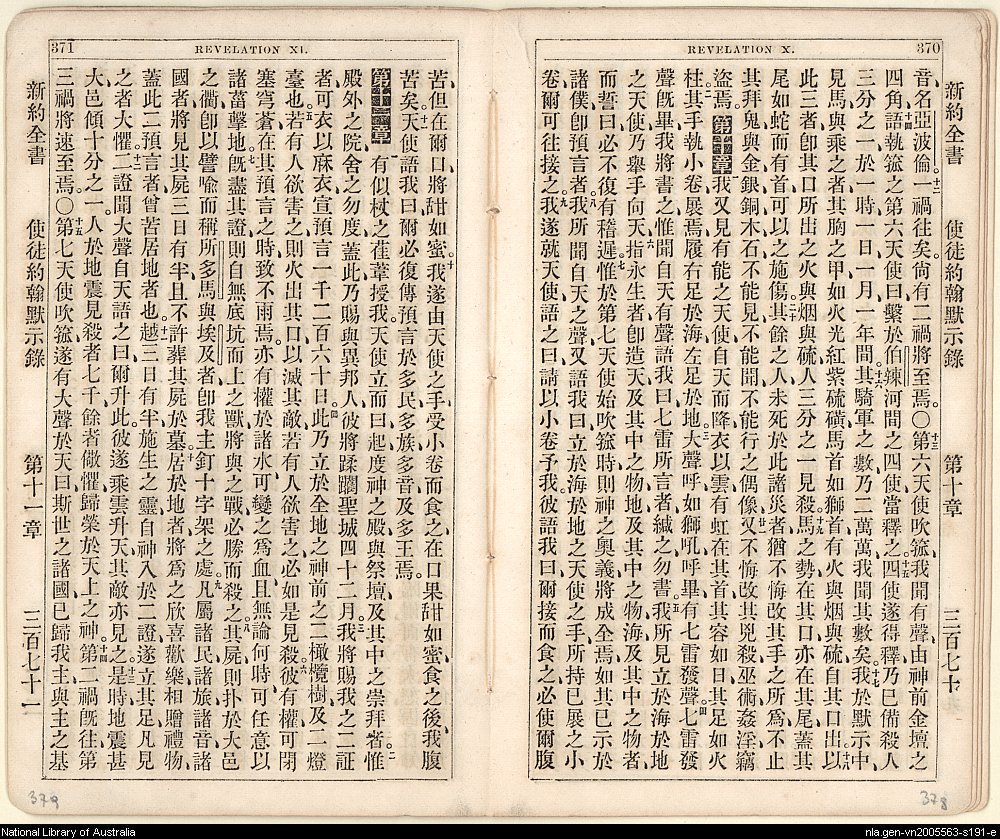 370
REVELATION X.
新約全書 使徒約翰默示錄 第十章 三百七十
音、名亞波倫。十二一禍往矣、尙有二禍將至焉。〇十三第六天使吹箛、我聞有聲、由神前金壇之
四角、十四語執箛之第六天使曰、繫於伯辣河間之四使當釋之。十五四使遂得釋、乃已備殺人
三分之一、於一時一日一月一年間。十六其騎軍之數、乃二萬萬、我聞其數矣。十七我於默示中
見馬與乘之者、其胸之甲、如火光紅紫硫磺、馬首如獅首、有火與烟與硫、自其口出。十八以
此三者、卽其口所出之火與烟與硫、人三分之一見殺。十九馬之勢在其口、亦在其尾、蓋其
尾如蛇而有首、可以之施傷。二十其餘之人、未死於此諸災者、猶不悔改其手之所爲、不止
其拜鬼、與金銀銅木石不能見不能聞不能行之偶像、廿一又不悔改其兇殺巫術姦淫竊
盜焉。第十章我又見有能之天使、自天而降、衣以雲、有虹在其首、其容如日、其足如火
柱、二其手執小卷展焉、履右足於海、左足於地、三大聲呼如獅吼、呼畢、有七雷發聲。四七雷發
聲旣畢、我將書之、惟聞自天有聲語我曰、七雷所言者緘之、勿書。五我所見立於海於地
之天使、乃舉手向天、六指永生者、卽造天及其中之物、地及其中之物、海及其中之物者、
而誓曰、必不復有稽遲。七惟於第七天使始吹箛時、則神之奧義將成全焉、如其已示於
諸僕卽預言者。八我所聞自天之聲、又語我曰、立於海於地之天使之手所持已展之小
卷、爾可往接之。九我遂就天使語之曰、請以小卷予我、彼語我曰、爾接而食之、必使爾腹
378
371
REVELATION XI.
苦、但在爾口將甜如蜜。十我遂由天使之手受小卷而食之、在口果甜如蜜、食之後我腹
苦矣。十一天使語我曰、爾必復傳預言於多民多族多音及多王焉。
第十一章有似杖之葦授我、天使立而曰、起度神之殿與祭壇、及其中之崇拜者。二惟
殿外之院、舍之勿度、蓋此乃賜與異邦人、彼將蹂躪聖城四十二月。三我將賜我之二証
者、可衣以麻衣、宣預言一千二百六十日。四此乃立於全地之神前之二橄欖樹、及二燈
臺也。五若有人欲害之、則火出其口、以滅其敵、若有人欲害之、必如是見殺。六彼有權可閉
塞穹蒼、在其預言之時、致不雨焉、亦有權於諸水、可變之爲血、且無論何時、可任意以
諸菑擊地。七旣盡其證、則自無底坑而上之獸、將與之戰、必勝而殺之。八其屍則扑於大邑
之衢、卽以譬喻而稱所多馬與埃及者、卽我主釘十字架之處。九凡屬諸民諸族諸音諸
國者、將見其屍三日有半、且不許葬其屍於墓。十居於地者、將爲之欣喜歡樂、相贈禮物、
蓋此二預言者、曾苦居地者也。十一越三日有半、施生之靈自神入於二證、遂立其足、凡見
之者大懼。十二二證聞大聲自天語之曰、爾升此、彼遂乘雲升天、其敵亦見之。十三是時地震甚
大、邑傾十分之一、人於地震見殺者七千、餘者儆懼、歸榮於天上之神。十四第二禍旣往、第
三禍將速至焉。〇十五第七天使吹箛、遂有大聲於天曰、斯世之諸國已歸我主、與主之基
新約全書 使徒約翰默示錄 第十一章 三百七十一
379
National Library of Australia
nla.gen-vn2005563-s191-e